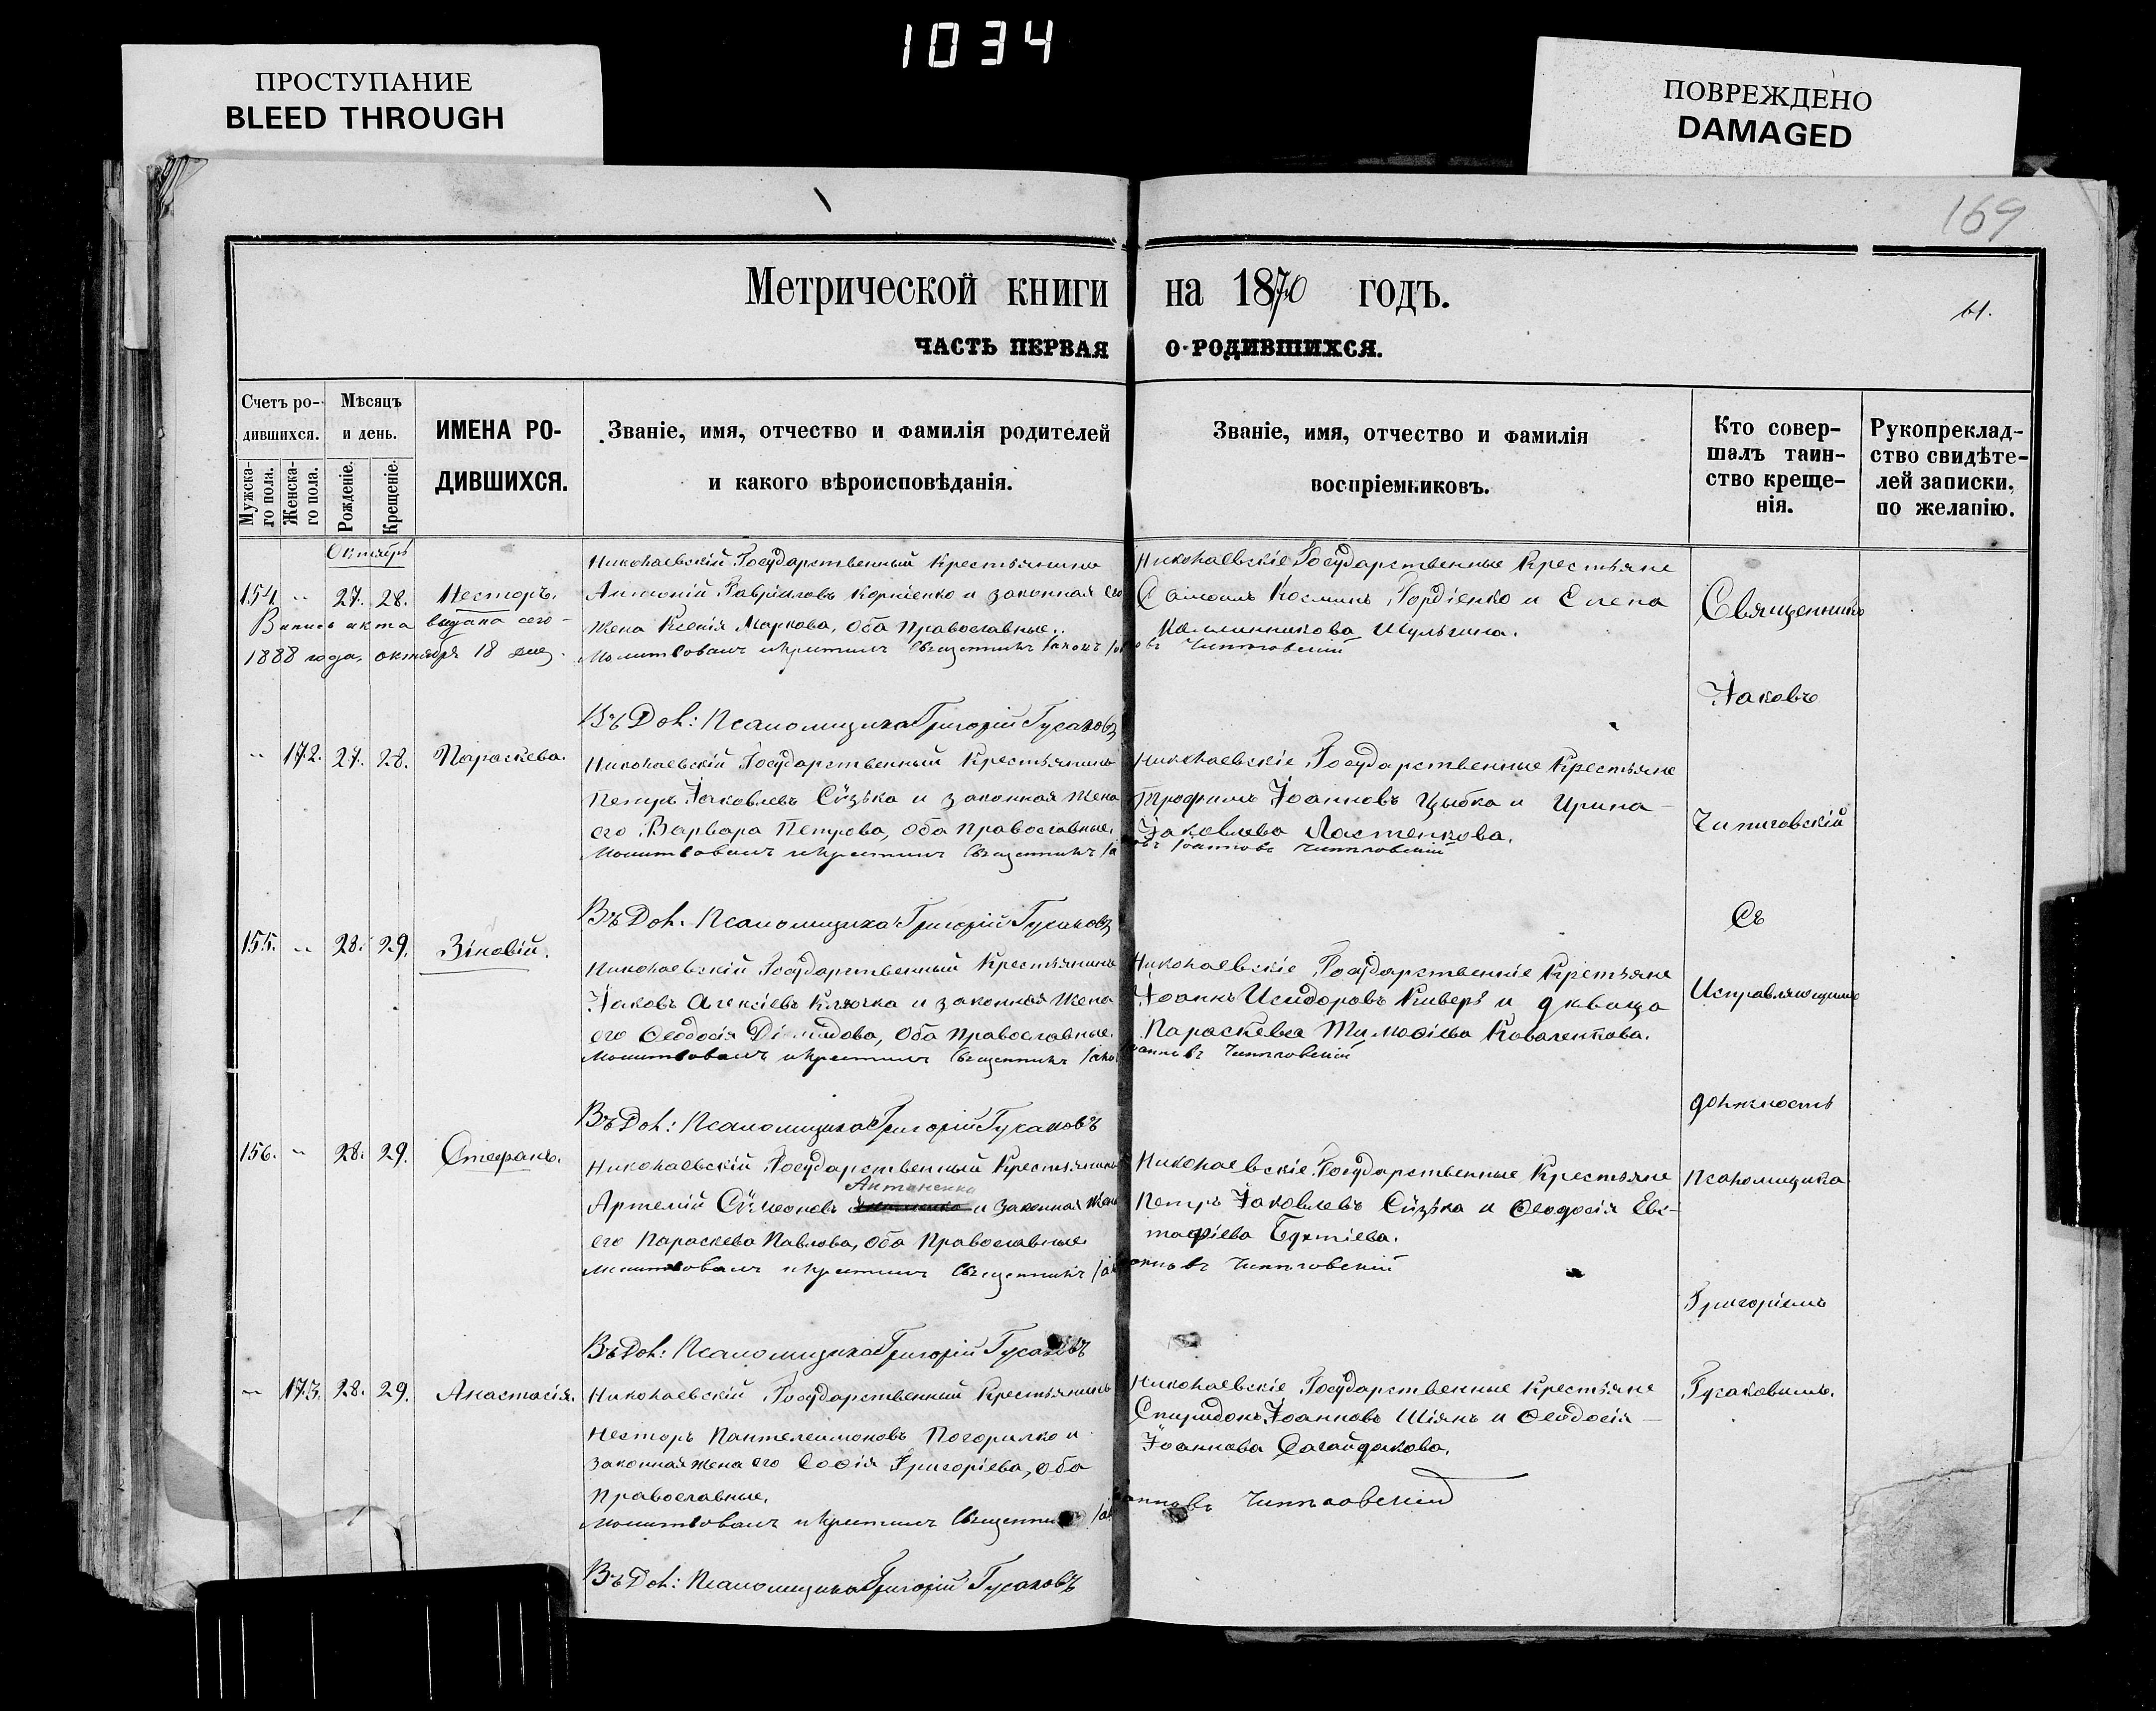 1034
ПРОСТУПАНИЕ
BLEED THROUGH
ПОВРЕЖДЕНО
DAMAGED
169
Метрической книги на 1870 годъ.
61.
ЧАСТЬ ПЕРВАЯ О РОДИВШИХСЯ.
Счетъ ро-
дившихся.
Мужска-
го пола.
Женска-
го пола.
Мѣсяцъ
и день.
Рожденіе.
Крещеніе.
ИМЕНА РО-
ДИВШИХСЯ.
Званіе, имя, отчество и фамилія родителей
и какого вѣроисповѣданія.
Званіе, имя, отчество и фамилія
воспріемниковъ.
Кто совер-
шалъ таин-
ство креще-
нія.
Рукоприклад-
ство свидѣте-
лей записки.
по желанію.
Октябрь
154. „ 27. 28. Несторъ.
1888 года, октября 18 дня.
Николаевскій Государственный Крестьянинъ
Антоній Гавріиловъ Корніенко и законная его
жена Ксенія Маркова, оба Православные.
Молитвовалъ и крестилъ Священникъ Іаковъ Іоанновъ Чипиговскій
Въ Дол: Псаломщика Григорій Гусаковъ
Николаевскіе Государственные Крестьяне
Самоилъ Косминъ Гордіенко и Елена
Калинникова Шульгина.
„ 172. 27. 28. Параскева.
Николаевскій Государственный Крестьянинъ
Петръ Іаковлевъ Сѵзька и законная жена
его Варвара Петрова, оба Православные.
Молитвовалъ и крестилъ Священникъ Іаковъ Іоанновъ Чипиговскій
Въ Дол. Псаломщика Григорій Гусаковъ
Николаевскіе Государственные Крестьяне
Трофимъ Іоанновъ Цыбка и Ирина
Іаковлева Ластенкова.
155. „ 28. 29. Зіновій.
Николаевскій Государственный Крестьянинъ
Іаковъ Алексіевъ Клочка и законная жена
его Ѳеодосія Діомидова, оба Православные.
Молитвовалъ и крестилъ Священникъ Іаковъ Іоанновъ Чипиговскій
Въ Дол: Псаломщика Григорій Гусаковъ
Николаевскіе Государственніе Крестьяне
Іоаннъ Исидоровъ Киверъ и дѣвица
Параскева Тимоѳіева Коваленкова.
156. „ 28. 29. Стефанъ.
Николаевскій Государственный Крестьянинъ
Антоненко
Артемій Сѵмеоновъ и законная жена
его Параскева Павлова, оба Православные
Молитвовалъ и крестилъ Священникъ Іаковъ Іоанновъ Чипиговскій
Въ Дол: Псаломщика Григорій Гусаковъ
Николаевскіе Государственные Крестьяне
Петръ Іаковлевъ Сѵзька и Ѳеодосія Евс-
тафіева
„ 173. 28. 29. Анастасія.
Николаевскій Государственный Крестьянинъ
Несторъ Пантелеимоновъ Погорилко и
законная жена его Софія Григоріева, оба
Православные.
Молитвовалъ и крестилъ Священникъ Іаковъ Іоанновъ Чипиговскій
Въ Дол: Псаломщика Григорій Гусаковъ
Николаевскіе Государственные Крестьяне
Спиридонъ Іоанновъ Шіянъ и Ѳеодосія
Іоаннова Сагайдакова.
Священникъ
Іаковъ
Чипиговскій
Съ
Исправляющимъ
должность
Псаломщика
Григоріемъ
Гусаковымъ.